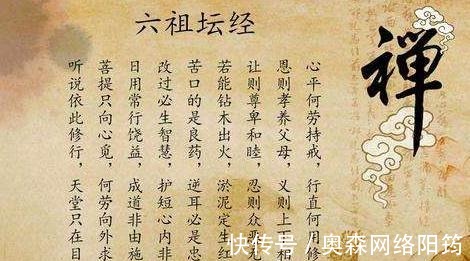 六祖坛经
禅
心平何劳持戒，行直何用修
恩则孝养父母，义则上下相
让则尊卑和睦，忍则众恶
若能钻木出火，淤泥定生红
苦口的是良药，逆耳必是忠
改过必生智慧，护短心内非
日用常行饶益，成道非由施
菩提只向心觅，何劳向外求
听说依此修行，天堂只在目
快传号/奥森网络阳筠